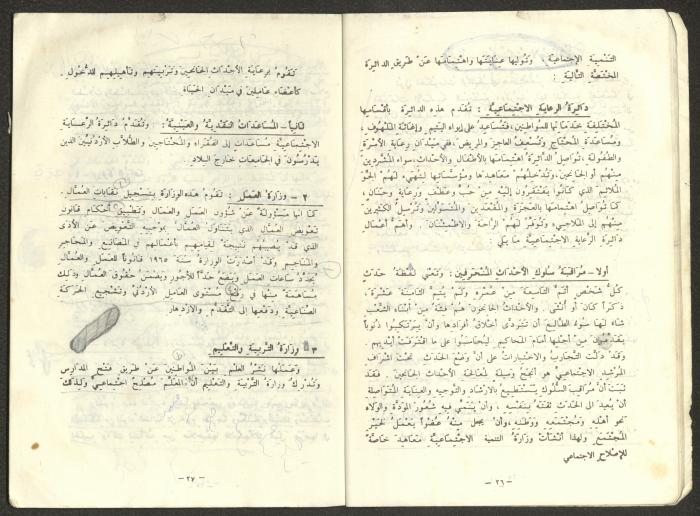 التنمية الإجتماعية ، وتوليها عنايتها واهتمامها عن طريق الدائرة
المختصة التالية :
دائرة الرعاية الاجتماعية : تقدم هذه الدائرة بأقسامها
المختلفة خدماتها للمواطنين ، فتساعد على إيواء اليتيم وإغاثة الملهوف ،
ومساعدة المحتاج وتسعف العاجز والمريض ، ففي ميدان رعاية الأسرة
والطفولة ، تواصل الدائرة اهتمامها بالأطفال والأحداث ، سواء المشردين
منهم أو الجانحين ، وتدخلهم معاهدها ومؤسساتها لتهيء لهم الجو
الملائم الذي كانوا يفتقرون إليه من حب وعطف ورعاية وحنان ،
كما تواصل اهتمامها بالعجزة والمقعدين والمتسولين وترسل الكثيرين
منهم إلى الملاجيء وتوفر لهم الراحة والاطمئنان . وأهم أعمال
دائرة الرعاية الاجتماعية ما يلي :
أولا - مراقبة سلوك الأحداث المنحرفين : وتعني لفظة حدث
كل شخص أتم التاسعة من عمره ولم يتم الثامنة عشرة ،
ذكرا كان أو أنثى . والأحداث الجانحون هم فئة من أبناء الشعب
شاء لها سوء الطالع أن تتردى أخلاق أفرادها وأن يرتكبوا ذنوباً
يقدمون من أجلها أمام المحاكم ليحاسبوا على ما اقترفت أيديهم .
وقد دلت التجارب والاختبارات على أن وضع الحدث تحت اشراف
المرشد الاجتماعي هو أنجع وسيلة لمعالجة الأحداث الجانحين . فقد
ثبت أن مراقب السلوك يستطيع بالارشاد والتوجيه والعناية المتواصلة
أن يعيد الى الحدث ثقته بنفسه ، وأن ينمي فيه شعور المودة والولاء
نحو أهله ومجتمعه ووطنه ، وأن يجعل منه عضواً يعمل لخير
المجتمع ولهذا أنشأت وزارة التنمية الاجتماعية معاهد خاصة
للإصلاح الاجتماعي
- ٢٦ -
تقوم برعاية الأحداث الجانحين وتربيتهم وتأهيلهم للدخول
كأعضاء عاملين في ميدان الحياة
ثانيا - المساعدات النقدية والعينية : وتقدم دائرة الرعاية
الاجتماعية مساعدات إلى الفقراء والمحتاجين والطلاب الأردنيين الذين
يدرسون في الجامعات خارج البلاد .
٢ - وزارة العمل : تقوم هذه الوزارة بتسجيل نقابات العمال .
كما انها مسؤولة عن شؤون العمل والعمال وتطبيق أحكام قانون
تعويض العمال الذي يتناول العمال بموجبه التعويض عن الأذى
الذي قد يصيبهم نتيجة لقيامهم بأعمالهم في المصانع والمحاجر
والمناجم وقد أصدرت الوزارة سنة ١٩٦٥ قانوناً للعمل والعمال
يحدد ساعات العمل ويضع حداً للأجور ويضمن حقوق العمال وذلك
مساهمة منها في رفع مستوى العامل الأردني وتشجيع الحركة
الصناعية ودفعها إلى التقدم والازدهار
٣ - وزارة التربية والتعليم
وعملها نشر العلم بين المواطنين عن طريق فتح المدارس
وتدرك وزارة التربية والتعليم أن المعلم مصلح اجتماعي وكذلك
- ٢٧ -